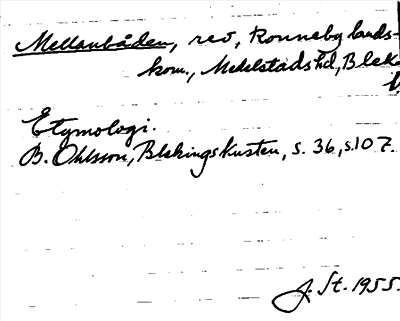 Mellanbåden, rev, Ronneby lands-
kom., Medelstads hd, Blek
Etymologi.
B. Ohlsson, Blekingskusten, s. 36, s. 107.
J. St. 1955.